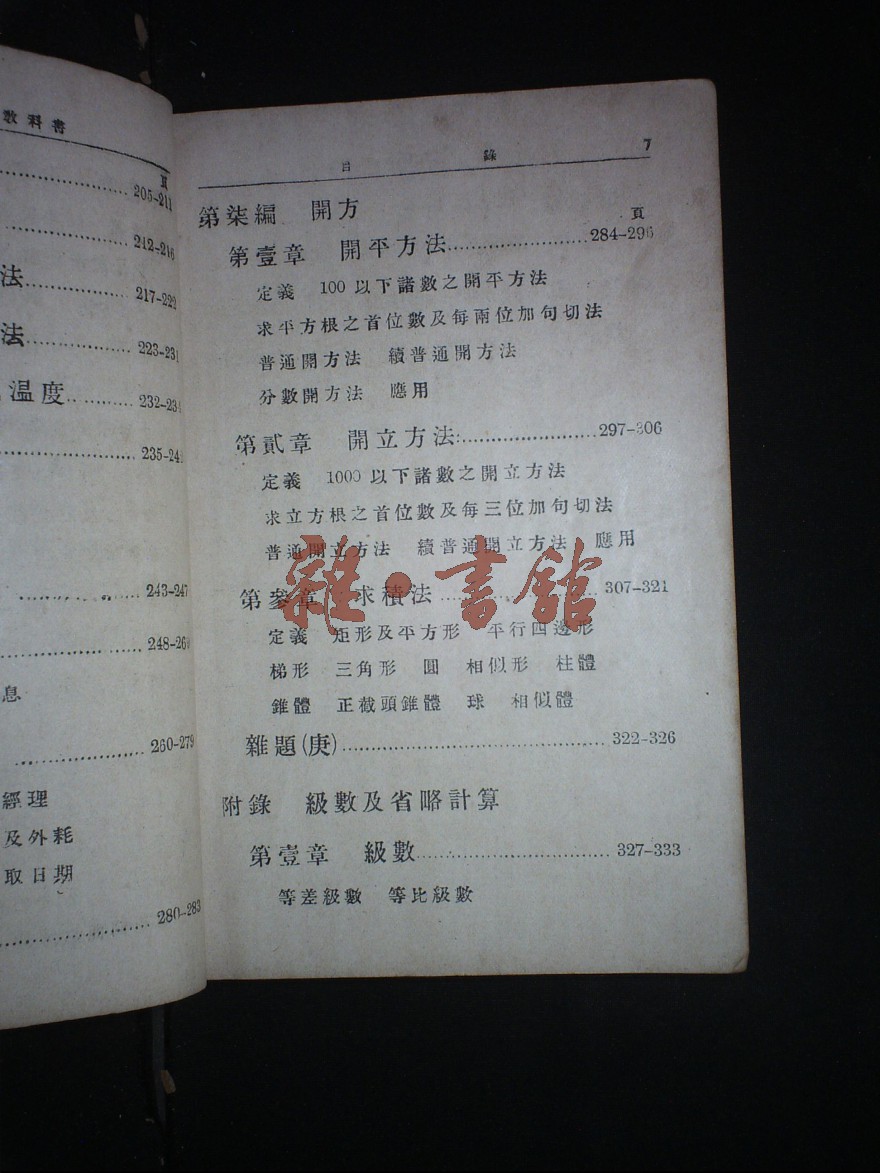 教科書
頁
205-211
242-216
法 217-222
法 223-231
溫度 232-234
235-241
243-247
248-260
息
260-279
經理
及外耗
取日期
280-283
目錄 7
第柒編 開方 頁
第壹章 開平方法 284-296
定義 100以下諸數之開平方法
求平方根之首位數及每兩位加句切法
普通開方法 續普通開方法
分數開方法 應用
第貳章 開立方法 297-306
定義 1000以下諸數之開立方法
求立方根之首位數及每三位加句切法
普通開立方法 續普通開立方法 應用
第參章 求積法 307-321
定義 矩形及平方形 平行四邊形
梯形 三角形 圓 相似形 柱體
錐體 正截頭錐體 球 相似體
雜題(庚) 322-326
附錄 級數及省略計算
第壹章 級數 327-333
等差級數 等比級數
雜·書館